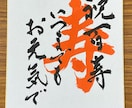 寿
祝百寿
いつまでも
お元気で